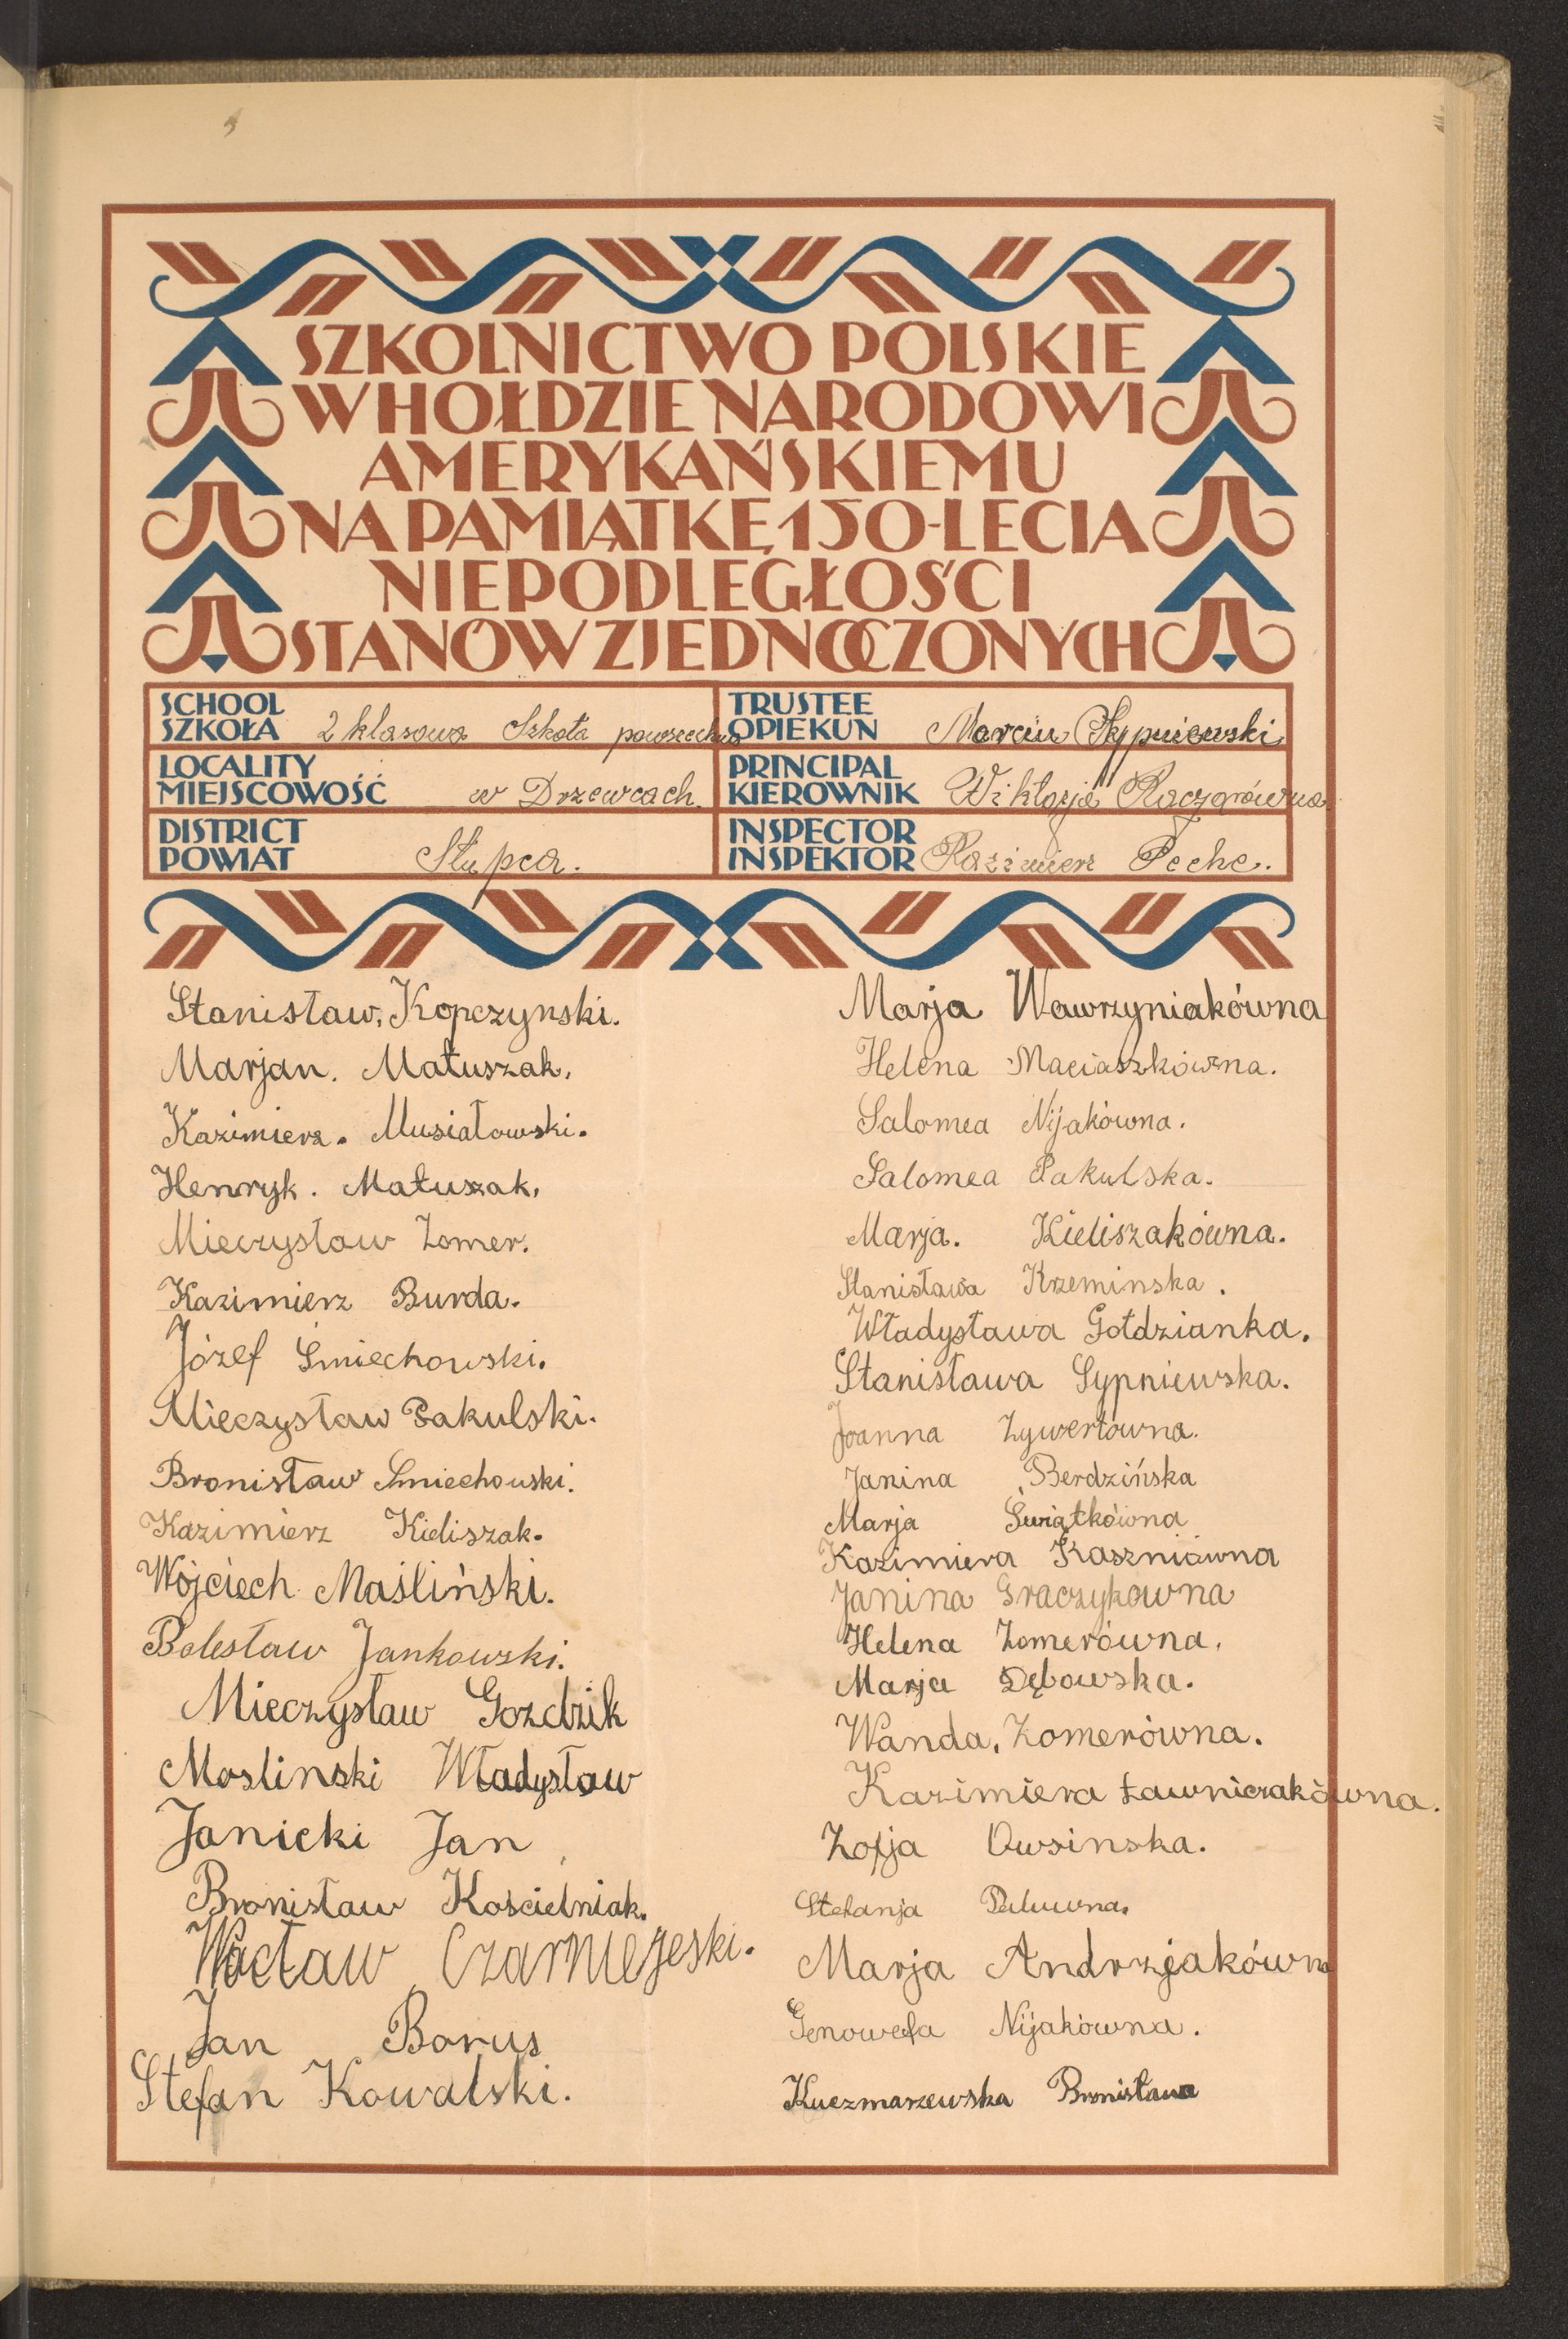 SZKOLNICTWO POLSKIE
W HOŁDZIE NARODOWI
AMERYKAŃSKIEMU
NA PAMIĄTKĘ 150-LECIA
NIEPODLEGŁOŚCI
STANÓW ZJEDNOCZONYCH
SCHOOL
SZKOŁA 2 klasowa Szkoła powszechna
TRUSTEE
OPIEKUN Marcin Sypniewski
LOCALITY
MIEJSCOWOŚĆ w Drzewcach.
PRINCIPAL
KIEROWNIK Wiktorja Raczarówna
DISTRICT
POWIAT Słupca.
INSPECTOR
INSPEKTOR Kazimierz Peche.
Stanisław. Kopczynski.
Marjan. Matuszak.
Kazimierz. Musiałowski.
Henryk. Matuszak.
Mieczysław Zomer.
Kazimierz Burda.
Józef Śmiechowski.
Mieczysław Pakulski.
Bronisław Smiechowski.
Kazimierz Kieliszak.
Wojciech Maśliński.
Bolesław Jankowski.
Mieczysław Gozdzik
Moslinski Władysław
Janicki Jan
Bronisław Kościelniak.
Wacław Czarniejeski.
Jan Borus
Stefan Kowalski.
Marja Wawrzyniakówna
Helena Maciaszkówna.
Salomea Nijakówna.
Salomea Pakulska.
Marja. Kieliszakówna.
Stanisława Krzeminska.
Władysława Gołdzianka.
Stanisława Sypniewska.
Joanna Zywertówna.
Janina Berdzińska
Marja Świątkówna
Kazimiera Kaszniówna
Janina Graczykowna
Helena Zomerówna.
Marja Dębowska.
Wanda. Zomerówna.
Kazimiera Ławniczakówna.
Zofja Owsinska.
Stefanja
Marja Andrzjakówna
Genowefa Nijakówna.
Kuczmarzewska Bronisława